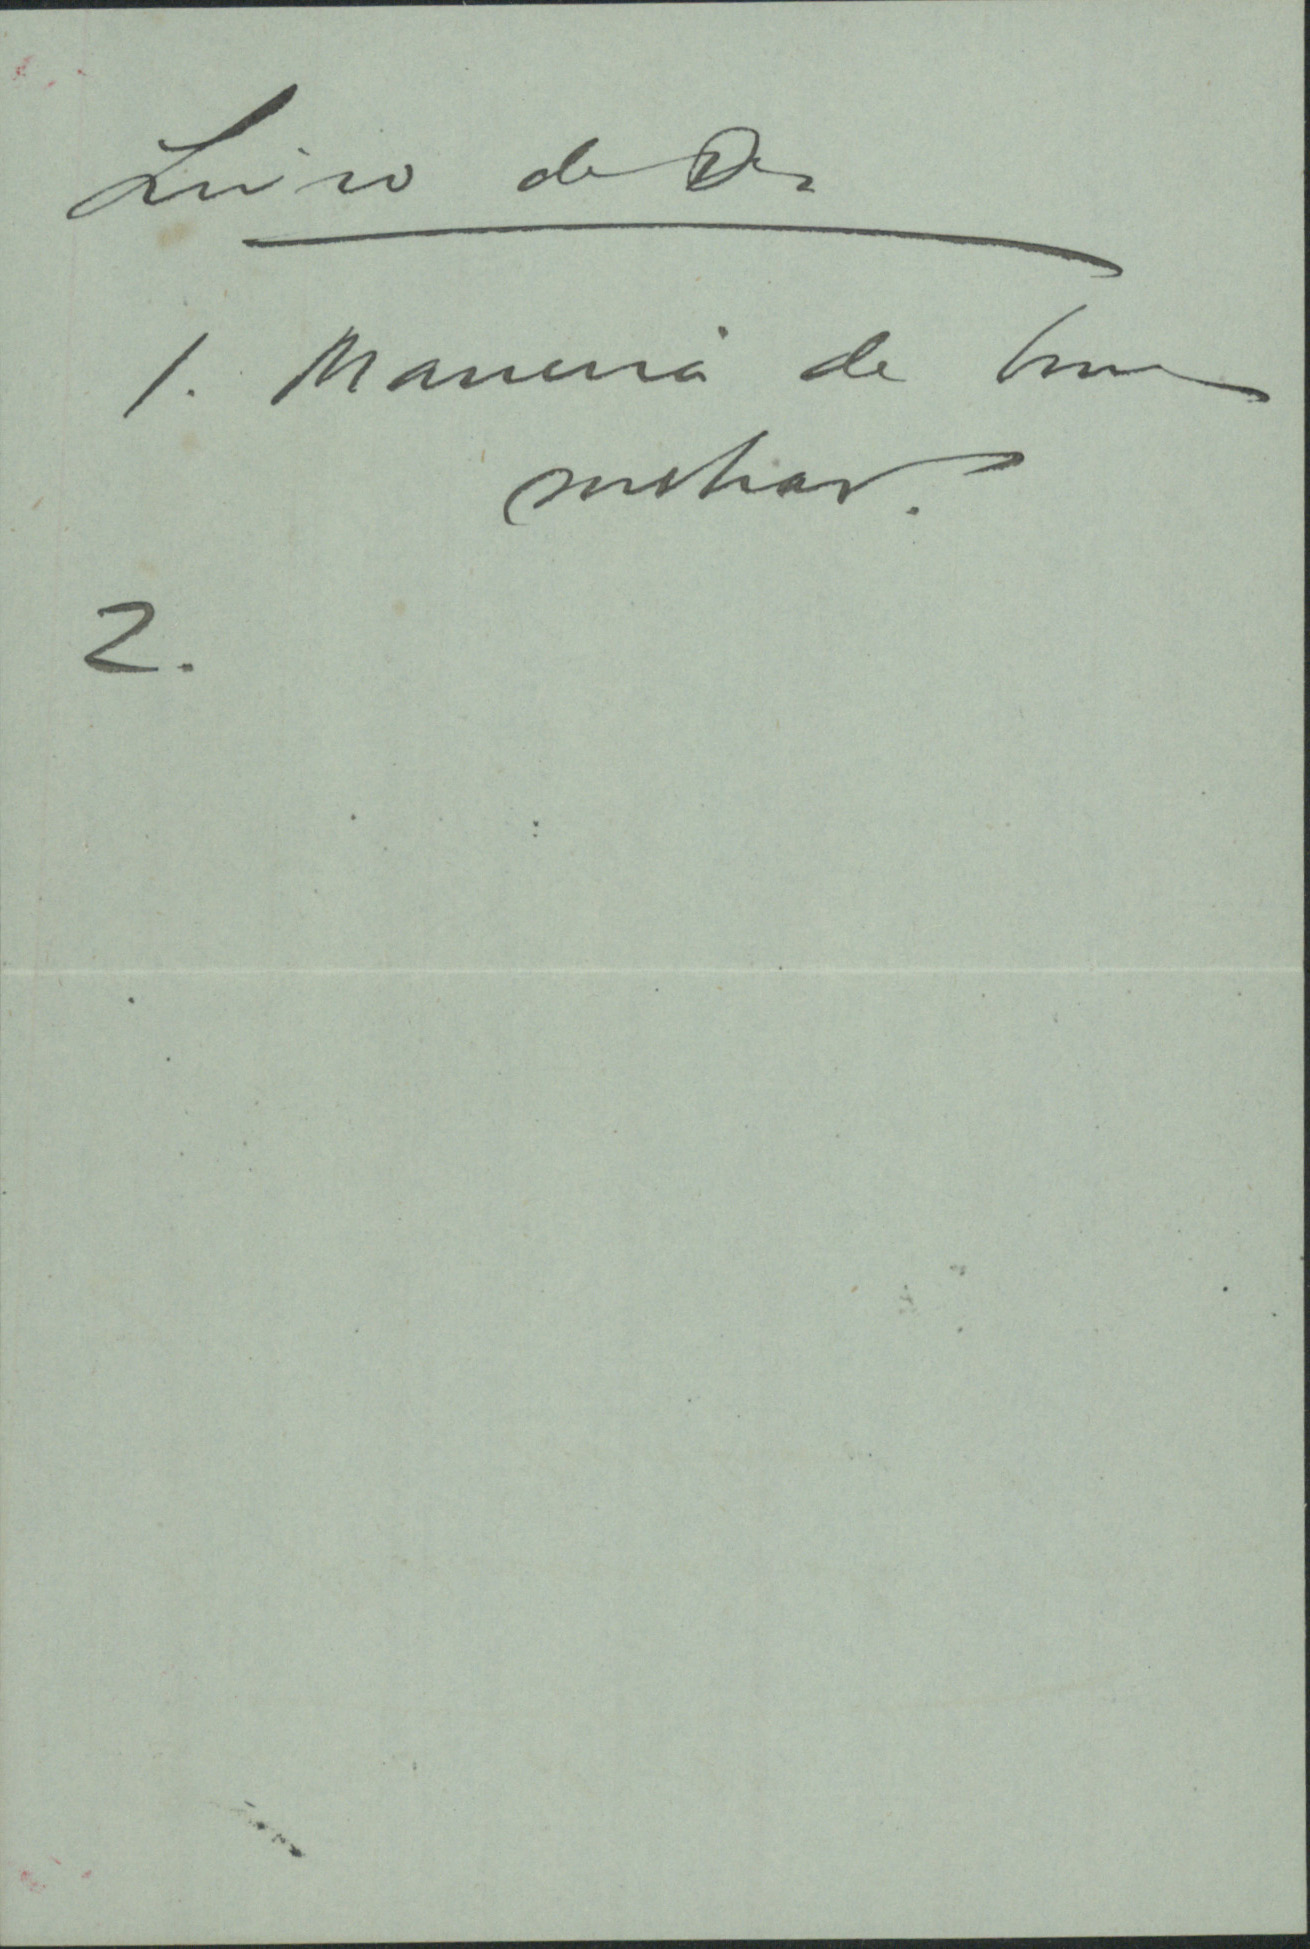 Livro de
1. Maneira de bem
sonhar.
2.